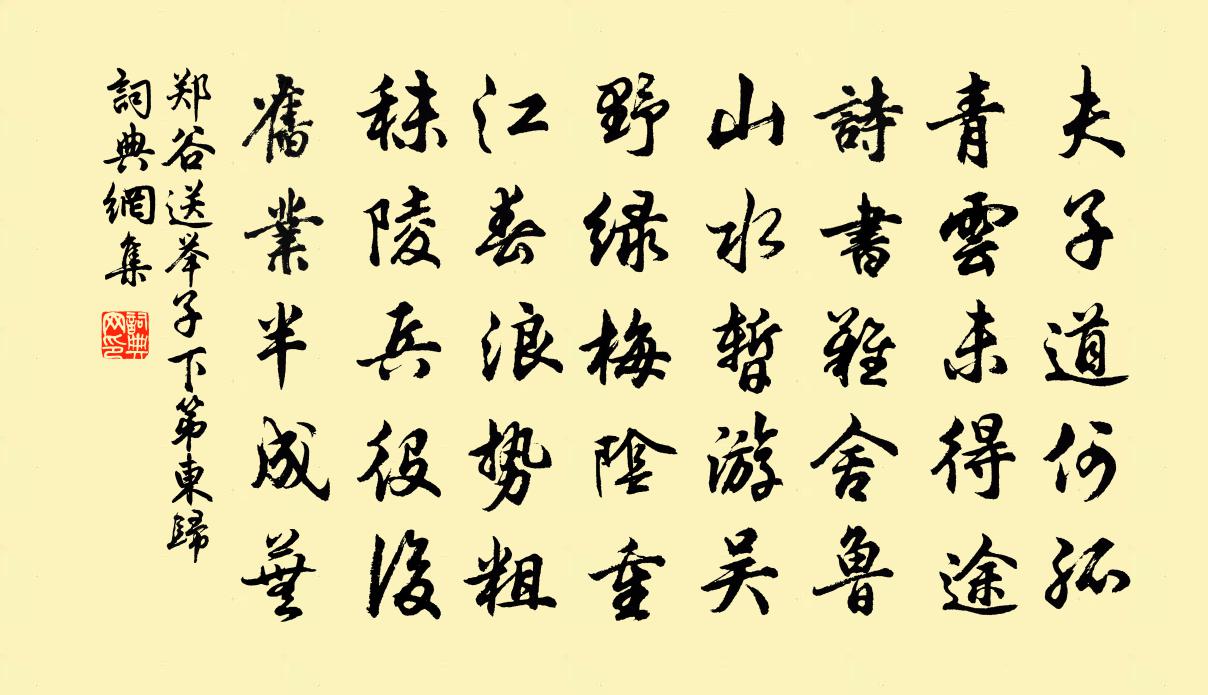 夫子道何孤
青雲未得途
詩書難舍魯
山水暫游吴
野绿梅陰重
江春浪势粗
秣陵兵役後
舊業半成蕪
郑谷送举子下第東歸
詞典網集
詞典網印